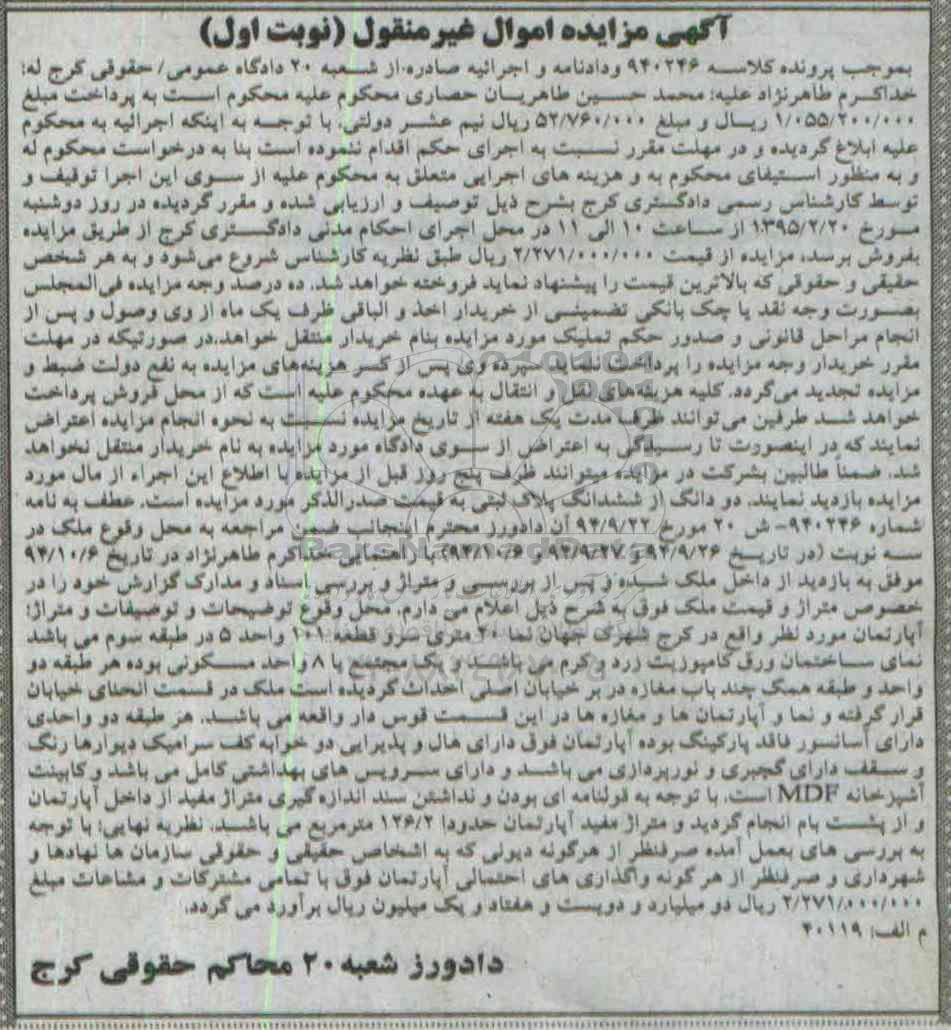 آگهی مزایده اموال غیرمنقول (نوبت اول)
بموجب پرونده کلاسه ۹۴۰۲۴۶ ودادنامه و اجرائیه صادره از شعبه ۲۰ دادگاه عمومی/ حقوقی کرج له:
خداکرم طاهرنژاد علیه: محمد حسین طاهریان حصاری محکوم علیه محکوم است به پرداخت مبلغ
۱/۰۵۵/۲۰۰/۰۰۰ ریال و مبلغ ۵۲/۷۶۰/۰۰۰ ریال نیم عشر دولتی. با توجه به اینکه اجرائیه به محکوم
علیه ابلاغ گردیده و در مهلت مقرر نسبت به اجرای حکم اقدام ننموده است بنا به درخواست محکوم له
و به منظور استیفای محکوم به و هزینه های اجرایی متعلق به محکوم علیه از سوی این اجرا توقیف و
توسط کارشناس رسمی دادگستری کرج بشرح ذیل توصیف و ارزیابی شده و مقرر گردیده در روز دوشنبه
مورخ ۱۳۹۵/۲/۲۰ از ساعت ۱۰ الی ۱۱ در محل اجرای احکام مدنی دادگستری کرج از طریق مزایده
بفروش برسد، مزایده از قیمت ۲/۲۷۱/۰۰۰/۰۰۰ ریال طبق نظریه کارشناس شروع می‌شود و به هر شخص
حقیقی و حقوقی که بالاترین قیمت را پیشنهاد نماید فروخته خواهد شد. ده درصد وجه مزایده فی‌المجلس
بصورت وجه نقد یا چک بانکی تضمینی از خریدار اخذ و الباقی ظرف یک ماه از وی وصول و پس از
انجام مراحل قانونی و صدور حکم تملیک مورد مزایده بنام خریدار منتقل خواهد.در صورتیکه در مهلت
مقرر خریدار وجه مزایده را پرداخت ننماید سپرده وی پس از کسر هزینه‌های مزایده به نفع دولت ضبط و
مزایده تجدید می‌گردد. کلیه هزینه‌های نقل و انتقال به عهده محکوم علیه است که از محل فروش پرداخت
خواهد شد طرفین می‌توانند ظرف مدت یک هفته از تاریخ مزایده نسبت به نحوه انجام مزایده اعتراض
نمایند که در اینصورت تا رسیدگی به اعتراض از سوی دادگاه مورد مزایده به نام خریدار منتقل نخواهد
شد. ضمناً طالبین بشرکت در مزایده میتوانند ظرف پنج روز قبل از مزایده با اطلاع این اجراء از مال مورد
مزایده بازدید نمایند. دو دانگ از ششدانگ پلاک ثبتی به قیمت صدرالذکر مورد مزایده است. عطف به نامه
شماره ۹۴۰۲۴۶- ش ۲۰ مورخ ۹۴/۹/۲۲ آن دادورز محترم اینجانب ضمن مراجعه به محل وقوع ملک در
سه نوبت (در تاریخ ۹۴/۹/۲۶ و ۹۴/۹/۲۷ و ۹۴/۱۰/۶) با راهنمایی خداکرم طاهرنژاد در تاریخ ۹۴/۱۰/۶
موفق به بازدید از داخل ملک شده و پس از بررسی و متراژ و بررسی اسناد و مدارک گزارش خود را در
خصوص متراژ و قیمت ملک فوق به شرح ذیل اعلام می دارم. محل وقوع توضیحات و توصیفات و متراژ:
آپارتمان مورد نظر واقع در کرج شهرک جهان نما ۲۰ متری سرو قطعه ۱۰۱ واحد ۵ در طبقه سوم می باشد
نمای ساختمان ورق کامپوزیت زرد و کرم می باشد و یک مجتمع با ۸ واحد مسکونی بوده هر طبقه دو
واحد و طبقه همک چند باب مغازه در بر خیابان اصلی احداث گردیده است ملک در قسمت انحنای خیابان
قرار گرفته و نما و آپارتمان ها و مغازه ها در این قسمت قوس دار واقعه می باشد. هر طبقه دو واحدی
دارای آسانسور فاقد پارکینگ بوده آپارتمان فوق دارای هال و پذیرایی دو خوابه کف سرامیک دیوارها رنگ
و سقف دارای گچبری و نورپردازی می باشد و دارای سرویس های بهداشتی کامل می باشد و کابینت
آشپزخانه MDF است. با توجه به قولنامه ای بودن و نداشتن سند اندازه گیری متراژ مفید از داخل آپارتمان
و از پشت بام انجام گردید و متراژ مفید آپارتمان حدودا ۱۲۶/۲ مترمربع می باشد. نظریه نهایی: با توجه
به بررسی های بعمل آمده صرفنظر از هرگونه دیونی که به اشخاص حقیقی و حقوقی سازمان ها نهادها و
شهرداری و صرفنظر از هر گونه واگذاری های احتمالی آپارتمان فوق با تمامی مشترکات و مشاعات مبلغ
۲/۲۷۱/۰۰۰/۰۰۰ ریال دو میلیارد و دویست و هفتاد و یک میلیون ریال برآورد می گردد.
م الف: ۴۰۱۱۹
دادورز شعبه ۲۰ محاکم حقوقی کرج